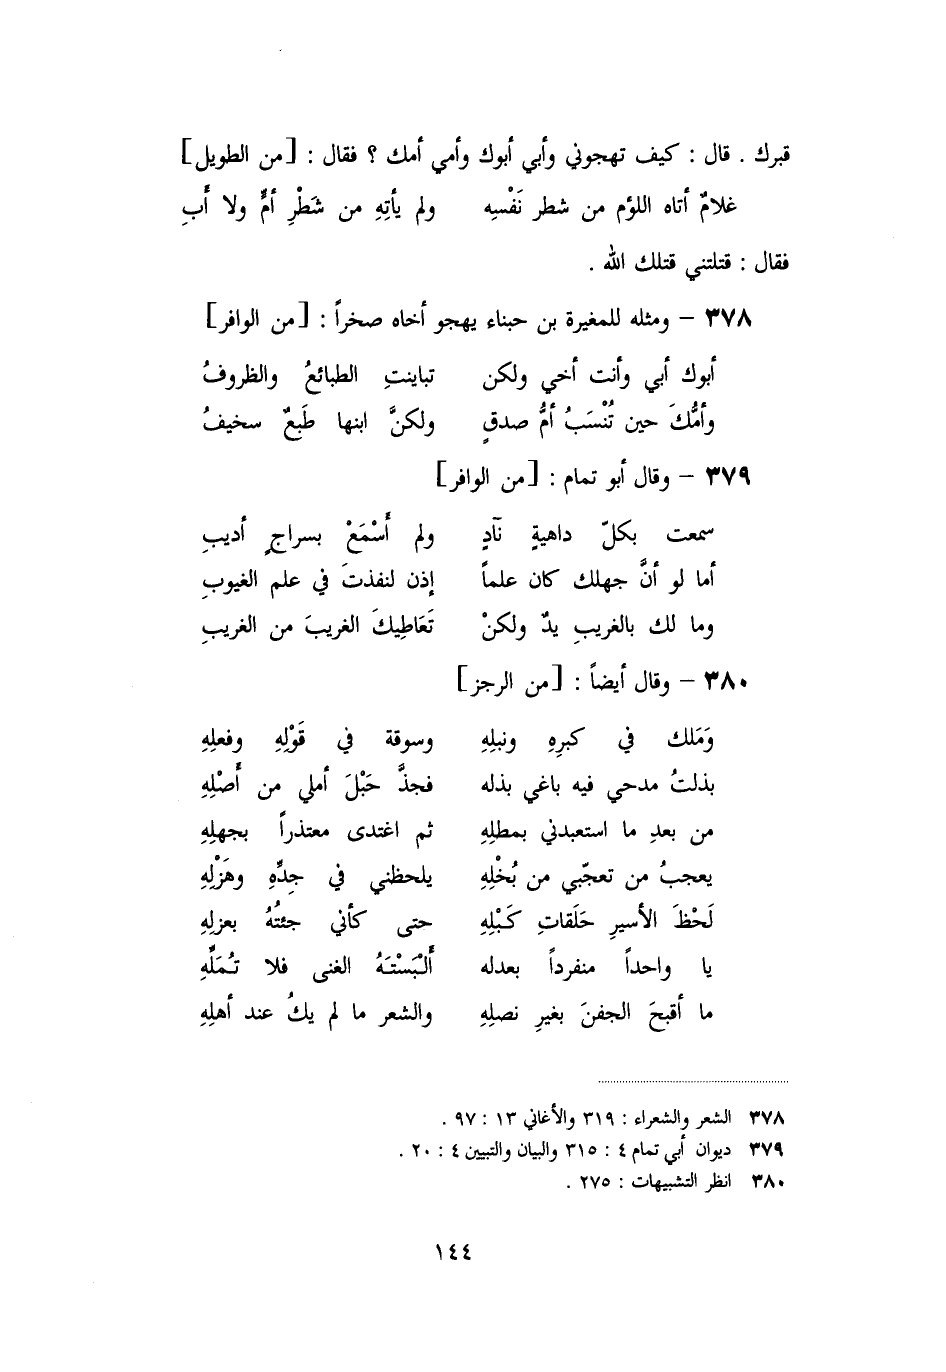 قبرك . قال : كيف تهجوني وأبي أبوك وأمي أمك ؟ فقال : [ من الطويل ]
غلامٌ أتاه اللؤم من شطر نَفْسِه ولم يأتِهِ من شَطْرِ أمٍّ ولا أَبِ
فقال : قتلتني قتلك الله .
٣٧٨ – ومثله للمغيرة بن حبناء يهجو أخاه صخراً : [ من الوافر ]
أبوك أبي وأنت أخي ولكن تباينتِ الطبائعُ والظروفُ
وأمُّكَ حين تُنْسَبُ أمُّ صدقٍ ولكنَّ ابنها طَبِعٌ سخيفُ
٣٧٩ – وقال أبو تمام : [ من الوافر ]
سمعت بكلّ داهيةٍ نآدٍ ولم أَسْمَعْ بسراجٍ أديبِ
أما لو أنَّ جهلك كان علماً إذن لنفذتَ في علم الغيوبِ
وما لك بالغريبِ يدٌ ولكنْ تَعَاطِيكَ الغريبَ من الغريبِ
٣٨٠ – وقال أيضاً : [ من الرجز ]
وَمَلك في كبرِهِ ونبلِهِ وسوقة في قَوْلِهِ وفعلِهِ
بذلتُ مدحي فيه باغي بذله فجذَّ حَبْلَ أملي من أَصْلِهِ
من بعدِ ما استعبدني بمطلِهِ ثم اغتدى معتذراً بجهلِهِ
يعجبُ من تعجّبي من بُخْلِهِ يلحظني في جِدِّهِ وهَزْلِهِ
لَحْظَ الأسيرِ حَلَقاتِ كَبْلِهِ حتى كأني جئتُهُ بعزلِهِ
يا واحداً منفرداً بعدله أَلْبَسْتَهُ الغنى فلا تُمَلِّهِ
ما أقبحَ الجفنَ بغيرِ نصلِهِ والشعر ما لم يكُ عند أهلِهِ
٣٧٨ الشعر والشعراء : ٣١٩ والأغاني ١٣ : ٩٧ .
٣٧٩ ديوان أبي تمام ٤ : ٣١٥ والبيان والتبيين ٤ : ٢٠ .
٣٨٠ انظر التشبيهات : ٢٧٥ .
١٤٤